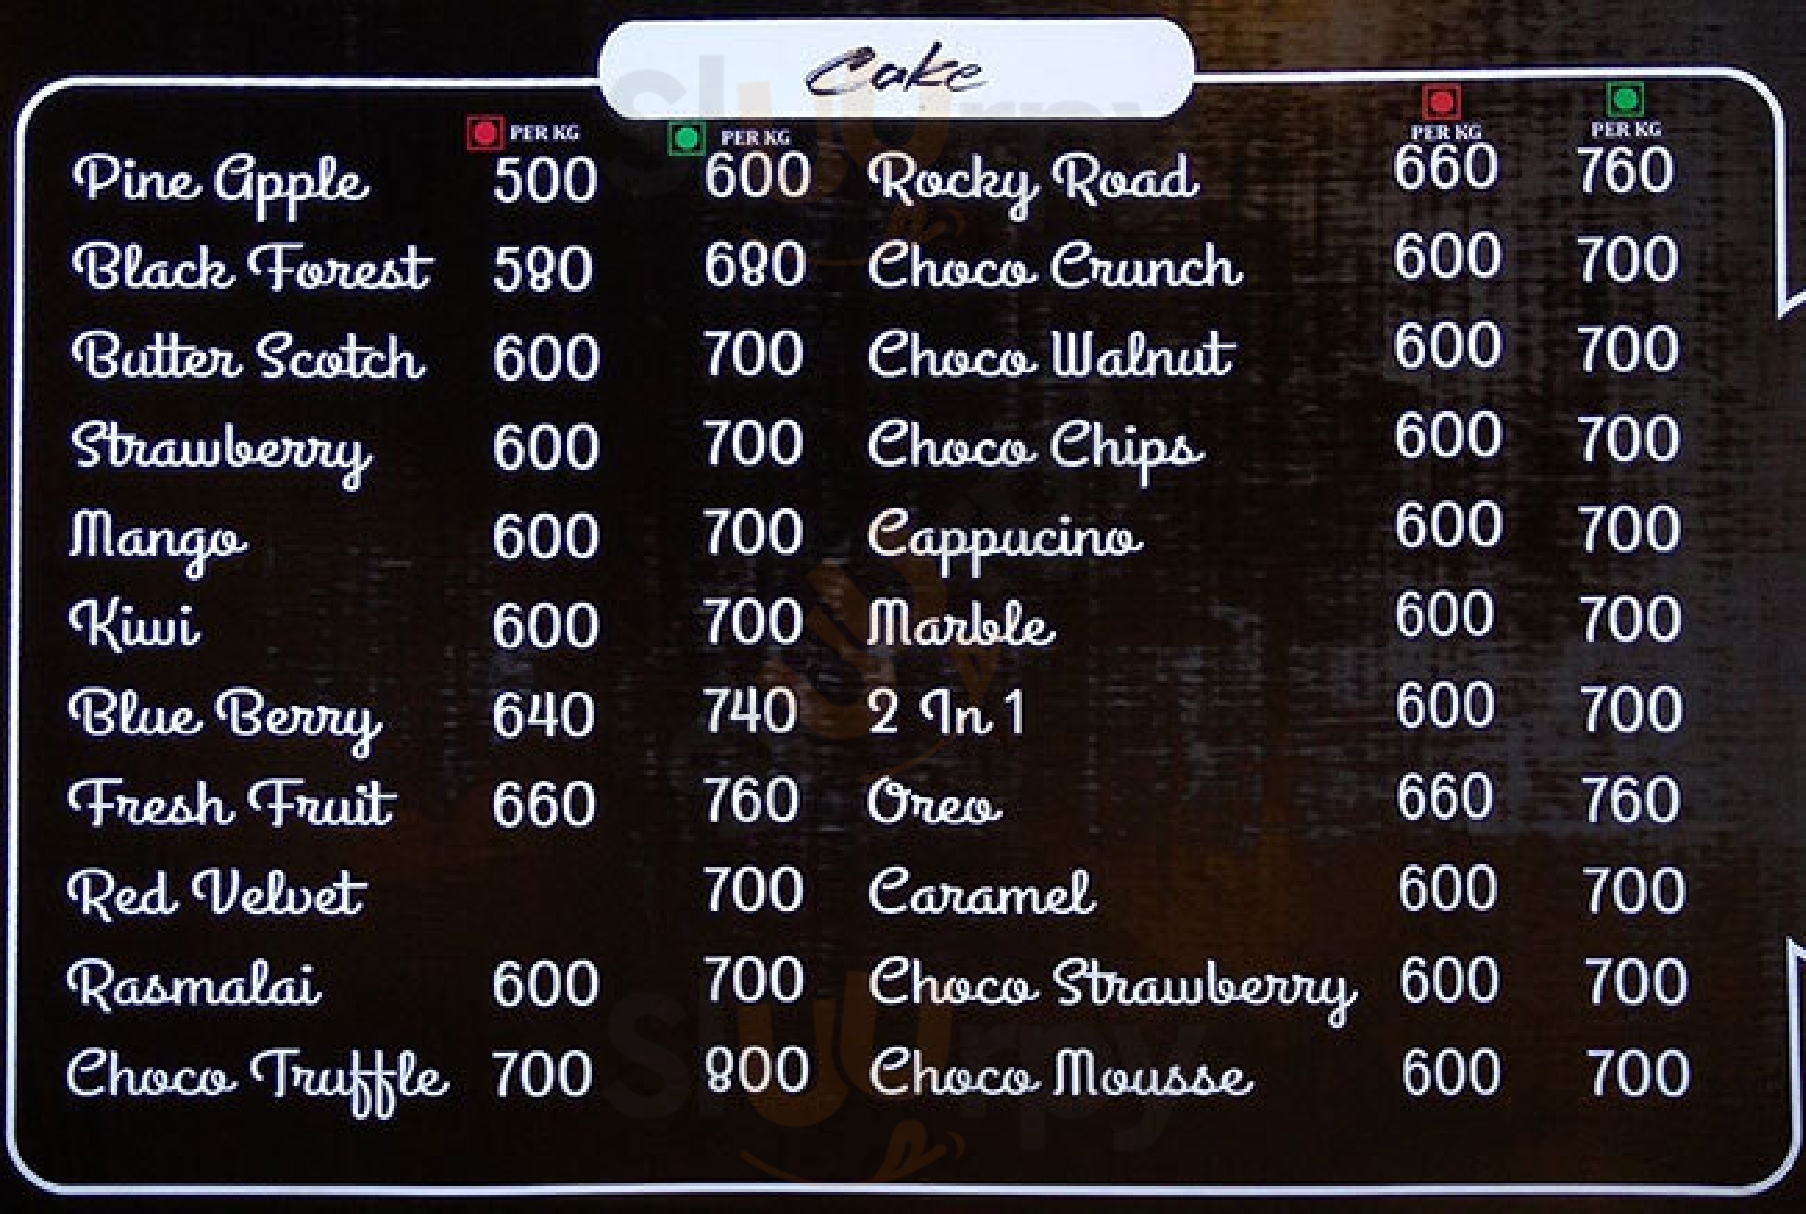 Cake
PER KG PER KG PER KG PER KG
Pine Apple 500 600 Rocky Road 660 760
Black Forest 580 680 Choco Crunch 600 700
Butter Scotch 600 700 Choco Walnut 600 700
Strawberry 600 700 Choco Chips 600 700
Mango 600 700 Cappucino 600 700
Kiwi 600 700 Marble 600 700
Blue Berry 640 740 2 In 1 600 700
Fresh Fruit 660 760 Oreo 660 760
Red Velvet 700 Caramel 600 700
Rasmalai 600 700 Choco Strawberry 600 700
Choco Truffle 700 800 Choco Mousse 600 700
Slurrpy
Slurrpy